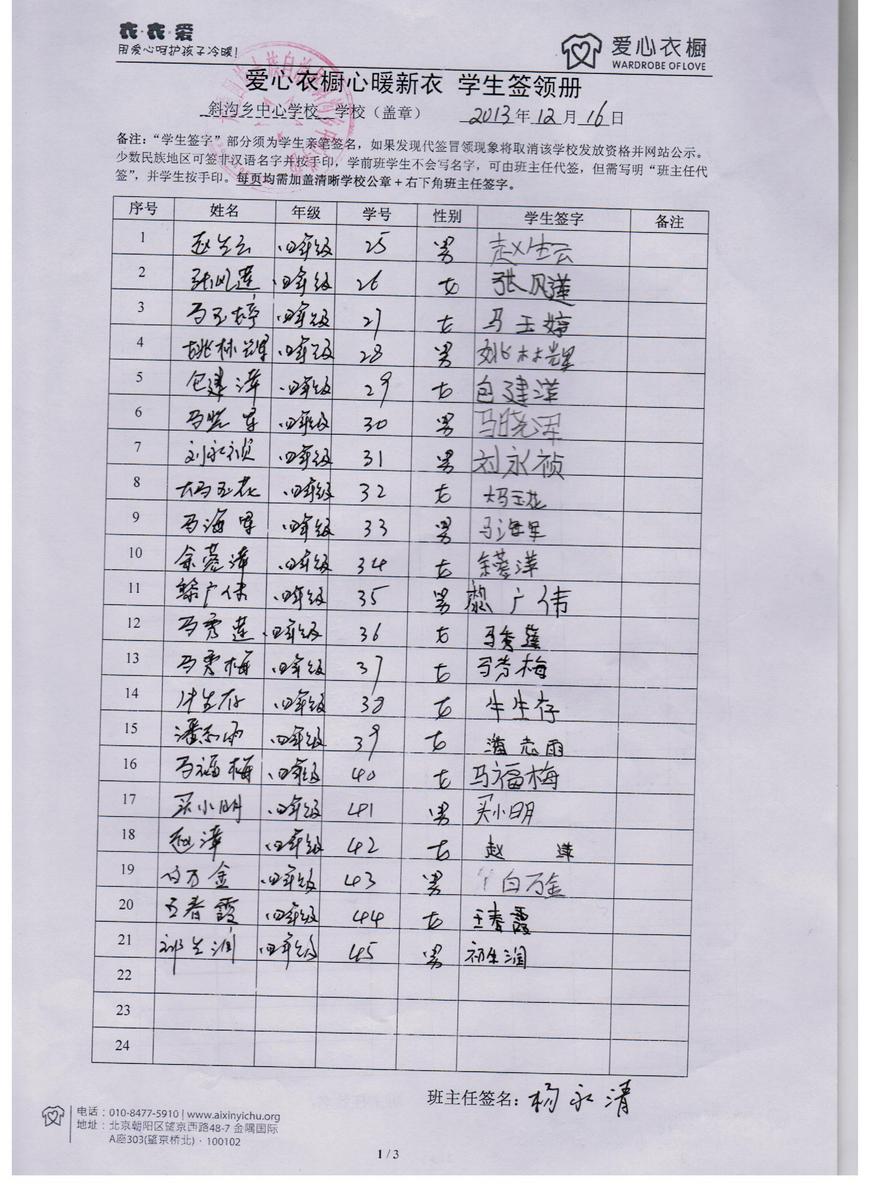 衣·衣·爱
用爱心呵护孩子冷暖!
爱心衣橱
WARDROBE OF LOVE
爱心衣橱心暖新衣 学生签领册
斜沟乡中心学校 学校（盖章） 2013年12月16日
备注：“学生签字”部分须为学生亲笔签名，如果发现代签冒领现象将取消该学校发放资格并网站公示。
少数民族地区可签非汉语名字并按手印，学前班学生不会写名字，可由班主任代签，但需写明“班主任代
签”，并学生按手印。每页均需加盖清晰学校公章+右下角班主任签字。
序号 姓名 年级 学号 性别 学生签字 备注
1 赵生云 四年级 25 男 赵生云
2 张凤莲 四年级 26 女 张凤莲
3 马玉婷 四年级 27 女 马玉婷
4 姚林辉 四年级 28 男 姚林辉
5 包建萍 四年级 29 女 包建萍
6 马晓军 四年级 30 男 马晓军
7 刘永祯 四年级 31 男 刘永祯
8 马玉花 四年级 32 女 马玉花
9 马海军 四年级 33 男 马海军
10 余蓉萍 四年级 34 女 余蓉萍
11 黎广伟 四年级 35 男 黎广伟
12 马秀莲 四年级 36 女 马秀莲
13 马秀梅 四年级 37 女 马秀梅
14 牛生存 四年级 38 女 牛生存
15 潘志雨 四年级 39 女 潘志雨
16 马福梅 四年级 40 女 马福梅
17 买小明 四年级 41 男 买小明
18 赵萍 四年级 42 女 赵萍
19 白万金 四年级 43 男 白万金
20 王春霞 四年级 44 女 王春霞
21 祁生润 四年级 45 男 祁生润
22
23
24
班主任签名：杨永清
电话：010-8477-5910 | www.aixinyichu.org
地址：北京朝阳区望京西路48-7 金隅国际
A座303(望京桥北)·100102
1 / 3